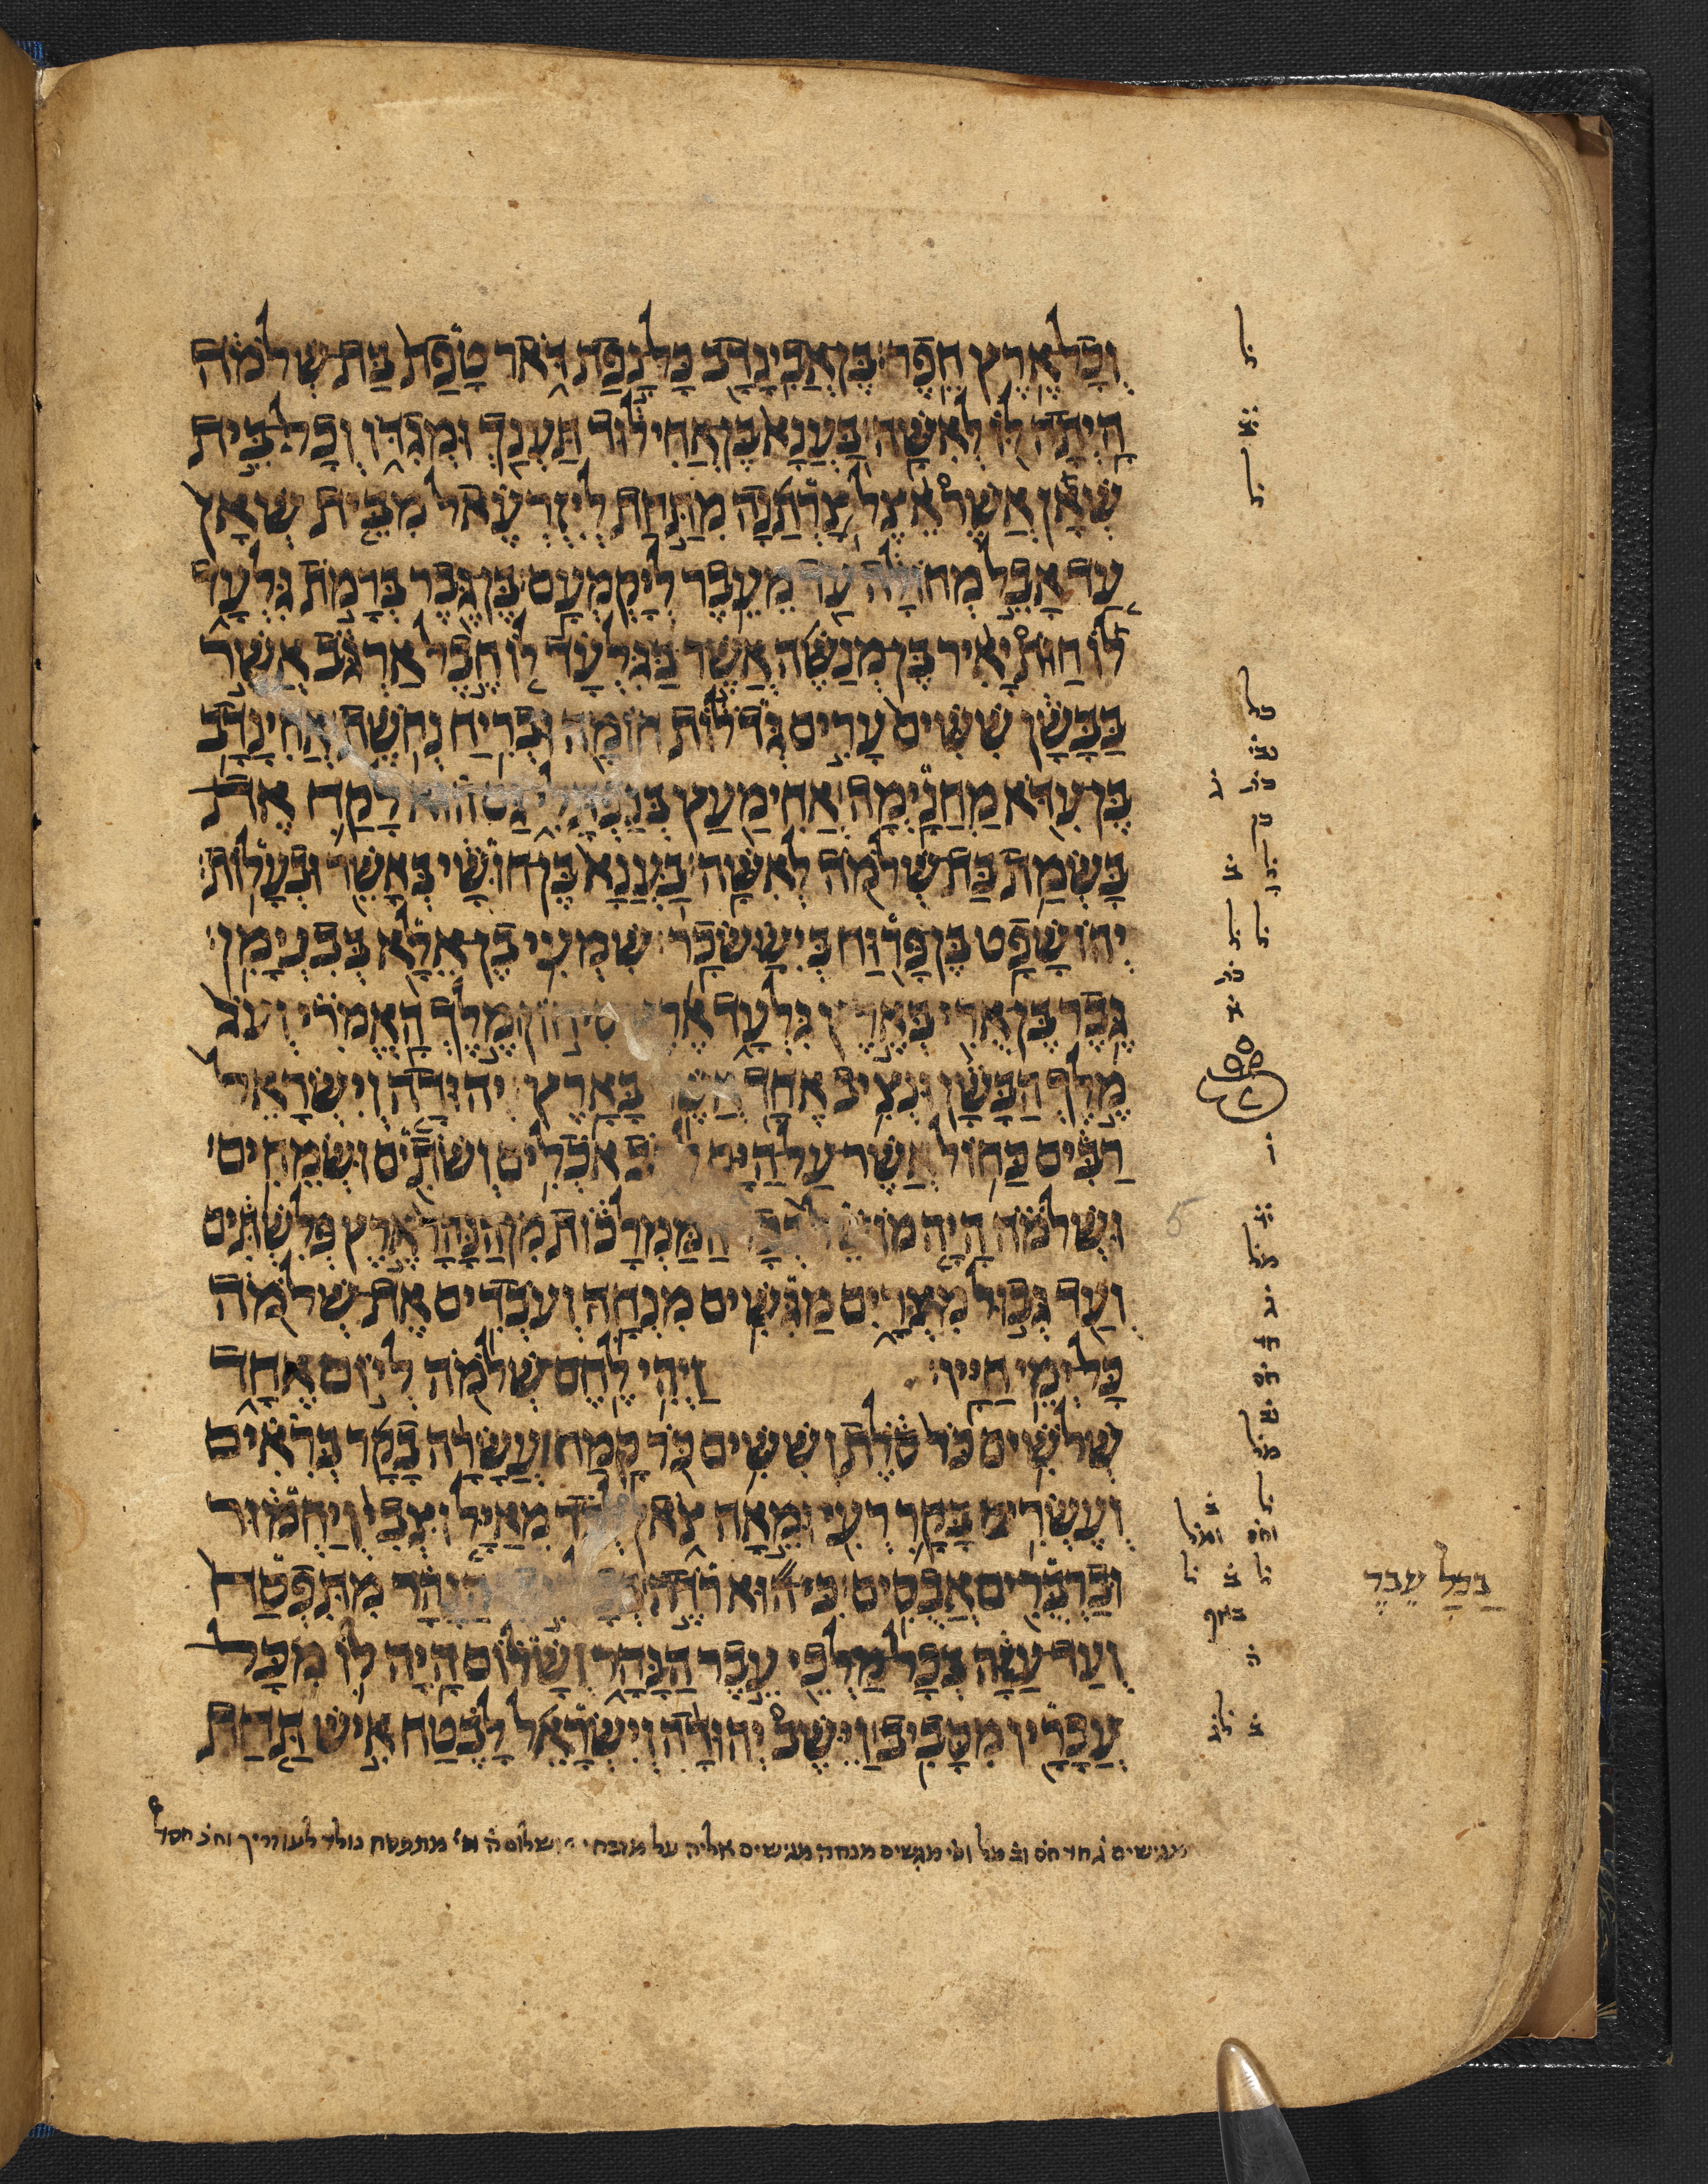 וְכָל אֶרֶץ חֵפֶר׃ בֶּן אֲבִינָדָב כָּל נָפַת דֹּאר טָפַת בַּת שְׁלֹמֹה
הָיְתָה לּוֹ לְאִשָּׁה׃ בַּעֲנָא בֶּן אֲחִילוּד תַּעְנַךְ וּמְגִדּוֹ וְכָל בֵּית
שְׁאָן אֲשֶׁר אֵצֶל צָרְתַנָה מִתַּחַת לְיִזְרְעֶאל מִבֵּית שְׁאָן
עַד אָבֵל מְחוֹלָה עַד מֵעֵבֶר לְיָקְמְעָם׃ בֶּן גֶּבֶר בְּרָמֹת גִּלְעָד
לוֹ חַוֹּת יָאִיר בֶּן מְנַשֶּׁה אֲשֶׁר בַּגִּלְעָד לוֹ חֶבֶל אַרְגֹּב אֲשֶׁר
בַּבָּשָׁן שִׁשִּׁים עָרִים גְּדֹלוֹת חוֹמָה וּבְרִיחַ נְחֹשֶׁת׃ אֲחִינָדָב
בֶּן עִדֹּא מַחֲנָיְמָה׃ אֲחִימַעַץ בְּנַפְתָּלִי גַּם הוּא לָקַח אֶת
בָּשְׂמַת בַּת שְׁלֹמֹה לְאִשָּׁה׃ בַּעֲנָא בֶּן חוּשָׁי בְּאָשֵׁר וּבְעָלוֹת׃
יְהוֹשָׁפָט בֶּן פָּרוּחַ בְּיִשָּׂשכָר׃ שִׁמְעִי בֶן אֵלָא בְּבִנְיָמִן׃
גֶּבֶר בֶּן אֻרִי בְּאֶרֶץ גִּלְעָד אֶרֶץ סִיחוֹן מֶלֶךְ הָאֱמֹרִי וְעֹג
מֶלֶךְ הַבָּשָׁן וּנְצִיב אֶחָד אֲשֶׁר בָּאָרֶץ׃ יְהוּדָה וְיִשְׂרָאֵל
רַבִּים כַּחוֹל אֲשֶׁר עַל הַיָּם לָרֹב אֹכְלִים וְשֹׁתִים וּשְׂמֵחִים׃
וּשְׁלֹמֹה הָיָה מוֹשֵׁל בְּכָל הַמַּמְלָכוֹת מִן הַנָּהָר אֶרֶץ פְּלִשְׁתִּים
וְעַד גְּבוּל מִצְרָיִם מַגִּשִׁים מִנְחָה וְעֹבְדִים אֶת שְׁלֹמֹה
כָּל יְמֵי חַיָּיו׃ וַיְהִי לֶחֶם שְׁלֹמֹה לְיוֹם אֶחָד
שְׁלֹשִׁים כֹּר סֹלֶת וְשִׁשִּׁים כֹּר קָמַח׃ עֲשָׂרָה בָקָר בְּרִאִים
וְעֶשְׂרִים בָּקָר רְעִי וּמֵאָה צֹאן לְבַד מֵאַיָּל וּצְבִי וְיַחְמוּר
וּבַרְבֻּרִים אֲבוּסִים׃ כִּי הוּא רֹדֶה בְּכָל עֵבֶר הַנָּהָר מִתִּפְסַח
וְעַד עַזָּה בְּכָל מַלְכֵי עֵבֶר הַנָּהָר וְשָׁלוֹם הָיָה לוֹ מִכָּל
עֲבָרָיו מִסָּבִיב׃ וַיֵּשֶׁב יְהוּדָה וְיִשְׂרָאֵל לָבֶטַח אִישׁ תַּחַת
בְּכָל עֵבֶר
מגישים ג חד חס וב מל וס׳ מגשים מנחה מגישים אליה על מזבחי